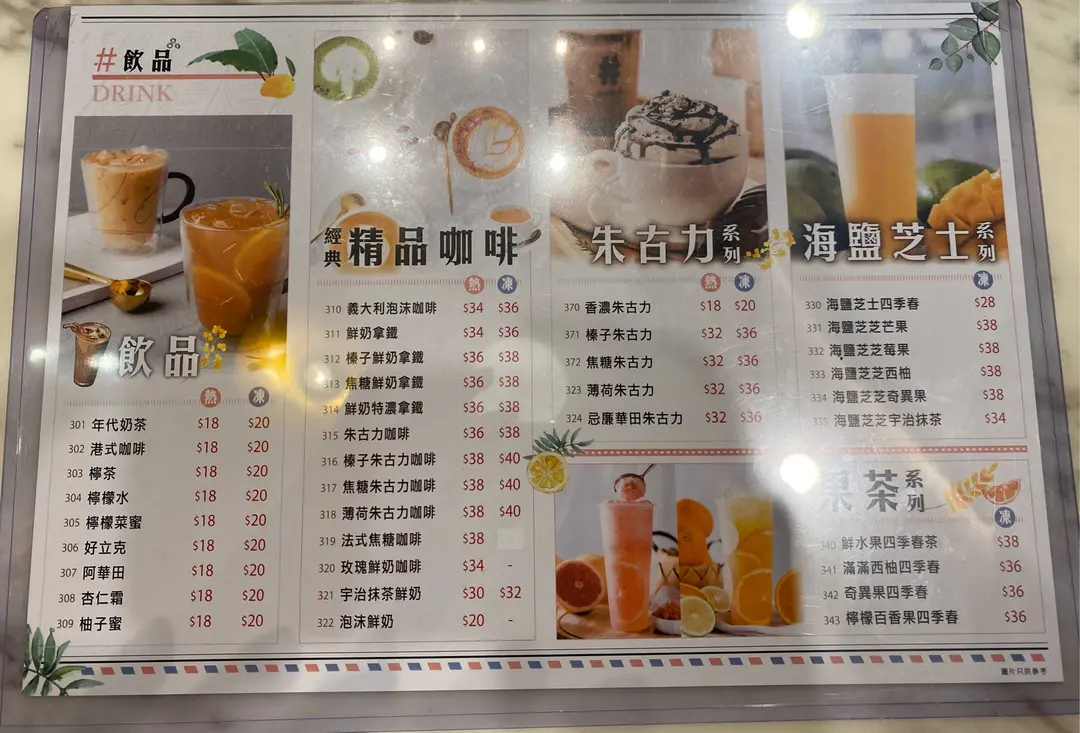 #飲品
DRINK
飲品
熱 凍
301 年代奶茶 $18 $20
302 港式咖啡 $18 $20
303 檸茶 $18 $20
304 檸檬水 $18 $20
305 檸檬菜蜜 $18 $20
306 好立克 $18 $20
307 阿華田 $18 $20
308 杏仁霜 $18 $20
309 柚子蜜 $18 $20
經典 精品咖啡
熱 凍
310 義大利泡沫咖啡 $34 $36
311 鮮奶拿鐵 $34 $36
312 榛子鮮奶拿鐵 $36 $38
313 焦糖鮮奶拿鐵 $36 $38
314 鮮奶特濃拿鐵 $36 $38
315 朱古力咖啡 $36 $38
316 榛子朱古力咖啡 $38 $40
317 焦糖朱古力咖啡 $38 $40
318 薄荷朱古力咖啡 $38 $40
319 法式焦糖咖啡 $38
320 玫瑰鮮奶咖啡 $34 -
321 宇治抹茶鮮奶 $30 $32
322 泡沫鮮奶 $20 -
朱古力系列
熱 凍
370 香濃朱古力 $18 $20
371 榛子朱古力 $32 $36
372 焦糖朱古力 $32 $36
323 薄荷朱古力 $32 $36
324 忌廉華田朱古力 $32 $36
海鹽芝士系列
凍
330 海鹽芝士四季春 $28
331 海鹽芝芝芒果 $38
332 海鹽芝芝莓果 $38
333 海鹽芝芝西柚 $38
334 海鹽芝芝奇異果 $38
335 海鹽芝芝宇治抹茶 $34
果茶系列
凍
340 鮮水果四季春茶 $38
341 滿滿西柚四季春 $36
342 奇異果四季春 $36
343 檸檬百香果四季春 $36
圖片只供參考